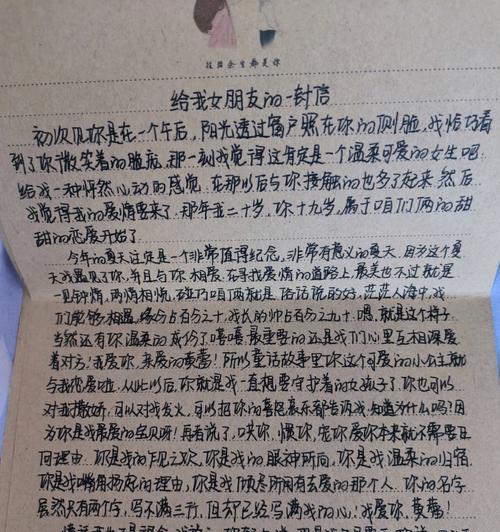 技能余生都是你
给我女朋友的一封信
初次见你是在一个午后，阳光透过窗户照在你的侧脸，我恰巧看
到了你微笑着的脸庞，那一刻我觉得这肯定是一个温柔可爱的女生吧
给我一种怦然心动的感觉，在那以后与你接触的也多了起来，然后
我觉得我的爱情要来了，那年我二十岁，你十九岁，属于咱们俩的甜
甜的恋爱开始了
今年的夏天注定是一个非常值得纪念，非常有意义的夏天，因为这个夏
天我遇见了你，并且与你相爱，在寻找爱情的道路上，最美也不过就是
一见钟情，两情相悦，碰巧咱俩就是，俗话说的好，茫茫人海中，我
们能够相遇，缘分占百分之十，我长的帅占百分之九十，嗯，就是这样子
当然还有你温柔的成份了嘻嘻，最重要的还是我们心里互相深爱
着对方！我爱你，亲爱的黄莺！所以童话故事里你这个可爱的小公主就
与我恋爱啦，从此以后，你就是我一直想要守护着的女孩子了，你也可以
对我撒娇，可以对我发火，可以把你的喜怒哀乐都告诉我，知道为什么吗？因
为你是我最爱的宝贝呀！再者说了，哄你，惯你，宠你爱你本来就不需要任
何理由，你是我的乍见之欢，你是我的眼神所向，你是我温柔的归宿
你是我嘴角扬起的理由，你是我倾尽所有去爱的那个人，你的名字
虽然只有两个字，写不满三行，但却已经写满了我的心！我爱你，黄莺！